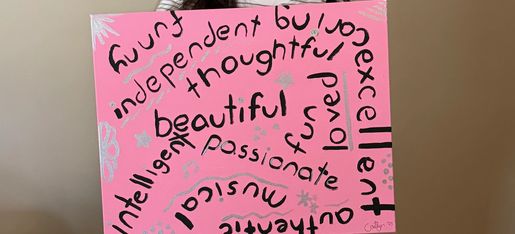 funny
independent
caring
thoughtful
excellent
beautiful
fun
loved
intelligent
passionate
musical
authentic